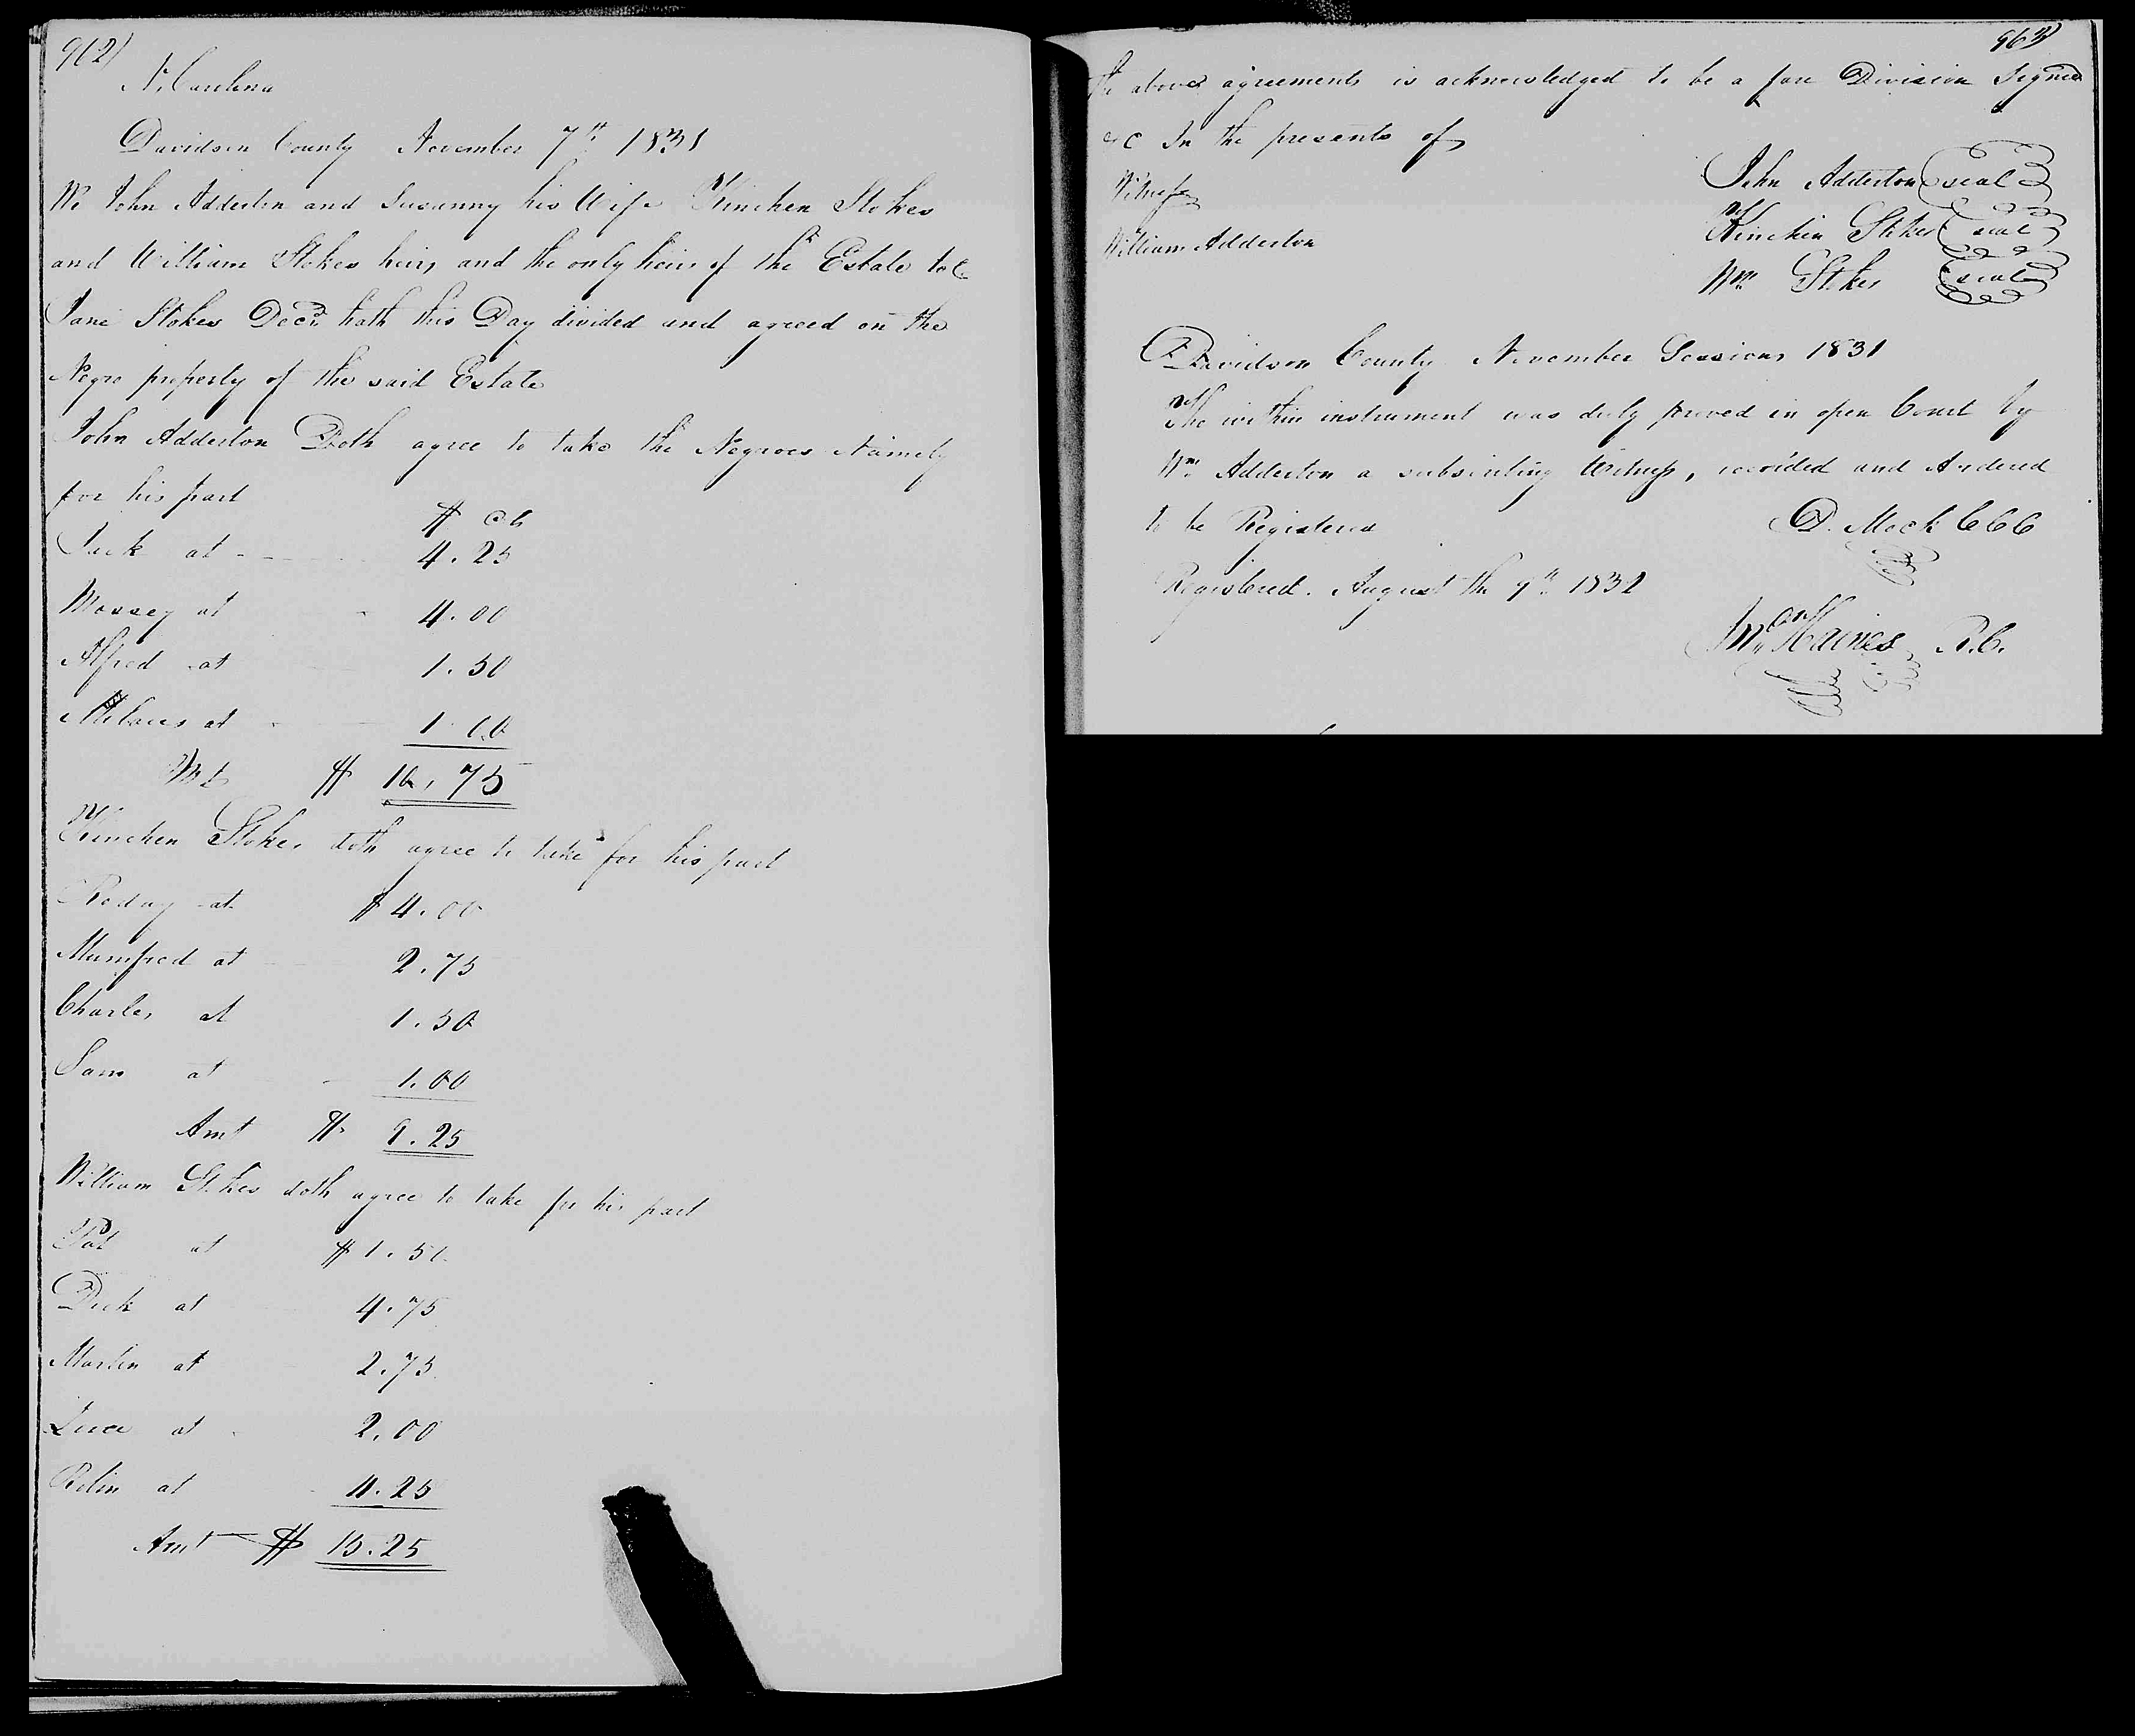 962)
N. Carolina
Davidson County November 7th 1831
We John Adderton and Susanny his Wife Kinchen Stokes
and William Stokes heirs and the only heirs of the Estate
Jane Stokes Decd. hath this Day divided and agreed on the
Negro property of the said Estate
John Adderton Doth agree to take the Negroes Namely
for his part
$ Cts
Jack at 4.25
Massey at 4.00
Alfred at 1.50
at 1.00
$ 10.75
Kinchen Stokes doth agree to take for his part
Roday at $4.00
Mumfred at 2.75
Charles at 1.50
Sam at 1.00
Amt $ 9.25
William Stokes doth agree to take for his part
Pat at $1.50
Dick at 4.75
Martin at 2.75
at 2.00
at 4.25
Amt $ 15.25
963)
The above agreements is acknowledged to be a fare Division Signed
&C In the presents of
Witness
William Adderton
John Adderton (seal)
Kinchin Stokes (seal)
Wm Stokes (seal)
Davidson County November Sessions 1831
The within instrument was duly proved in open Court by
Wm. Adderton a subscribing Witness, recorded and Ordered
to be Registered
D. Mock CCC
Registered. August the 9th 1832
Jno Haines R.C.